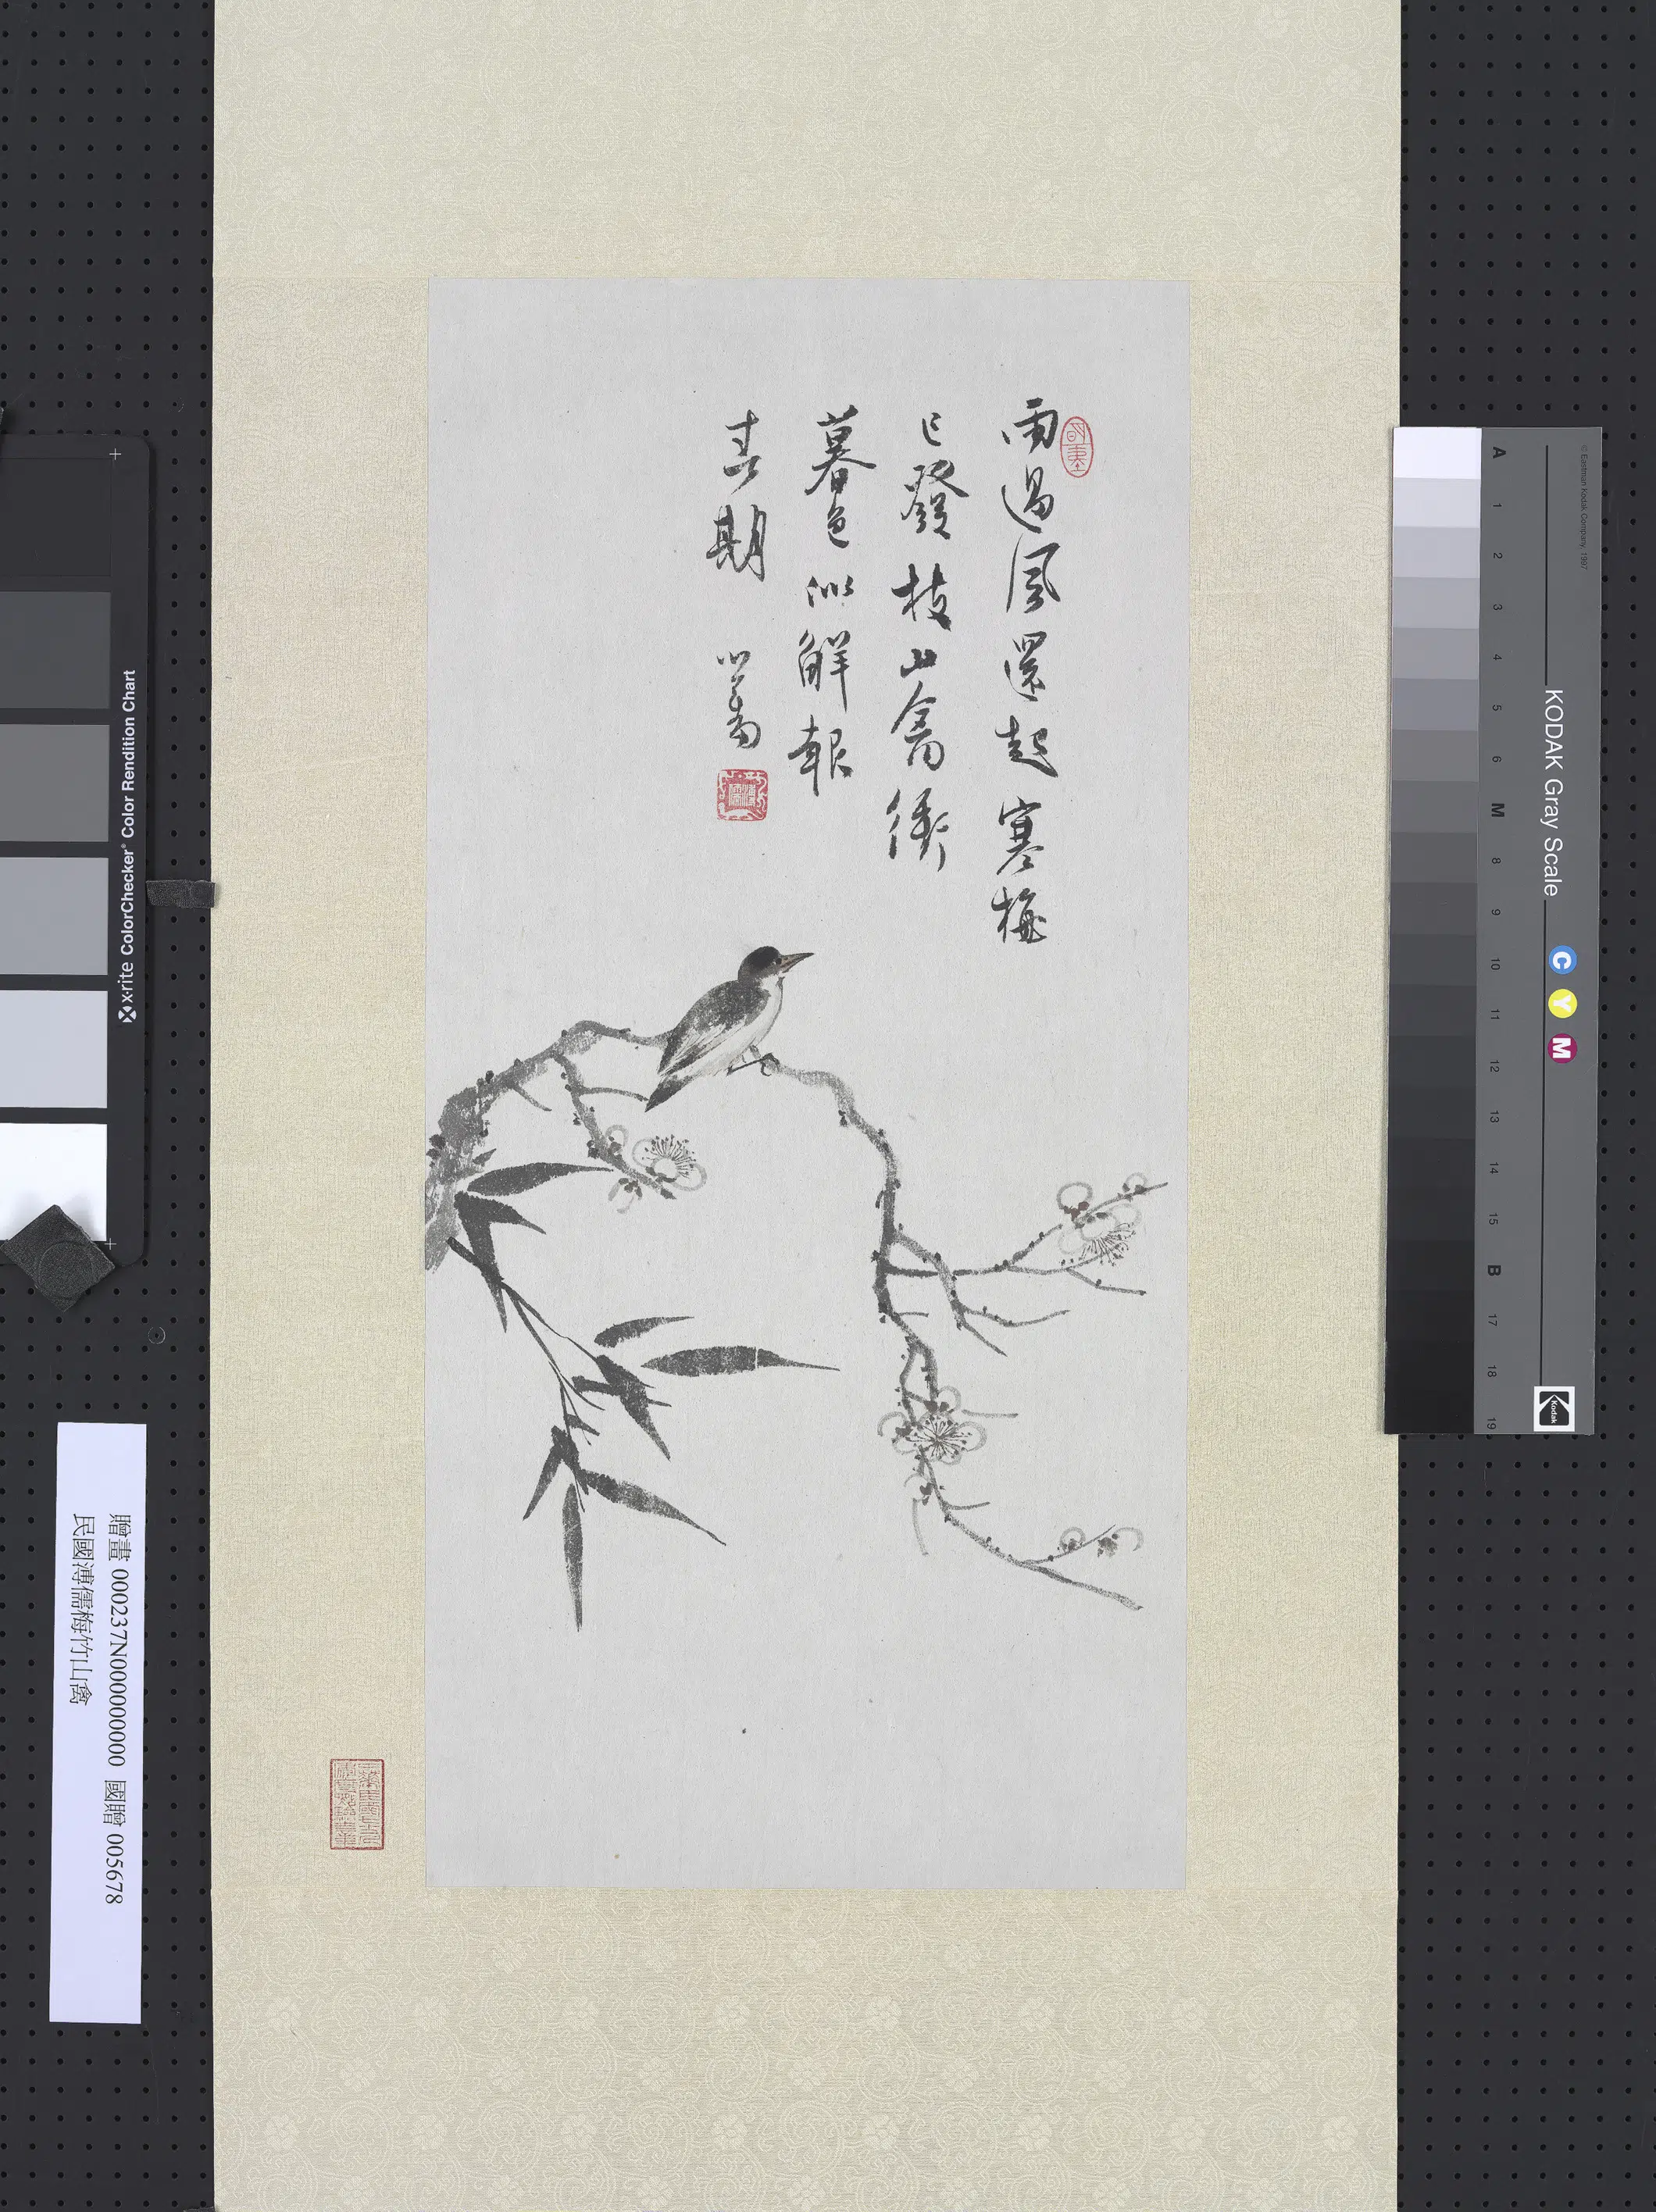 雨過風還起寒梅
已發枝山禽銜
暮色似解報
春期 心畬
溥儒
贈畫 000237N000000000 國贈 005678
民國溥儒梅竹山禽
x-rite ColorChecker® Color Rendition Chart
© Eastman Kodak Company, 1997
KODAK Gray Scale
C Y M
Kodak
A 1 2 3 4 5 6 M 8 9 10 11 12 13 14 15 B 17 18 19